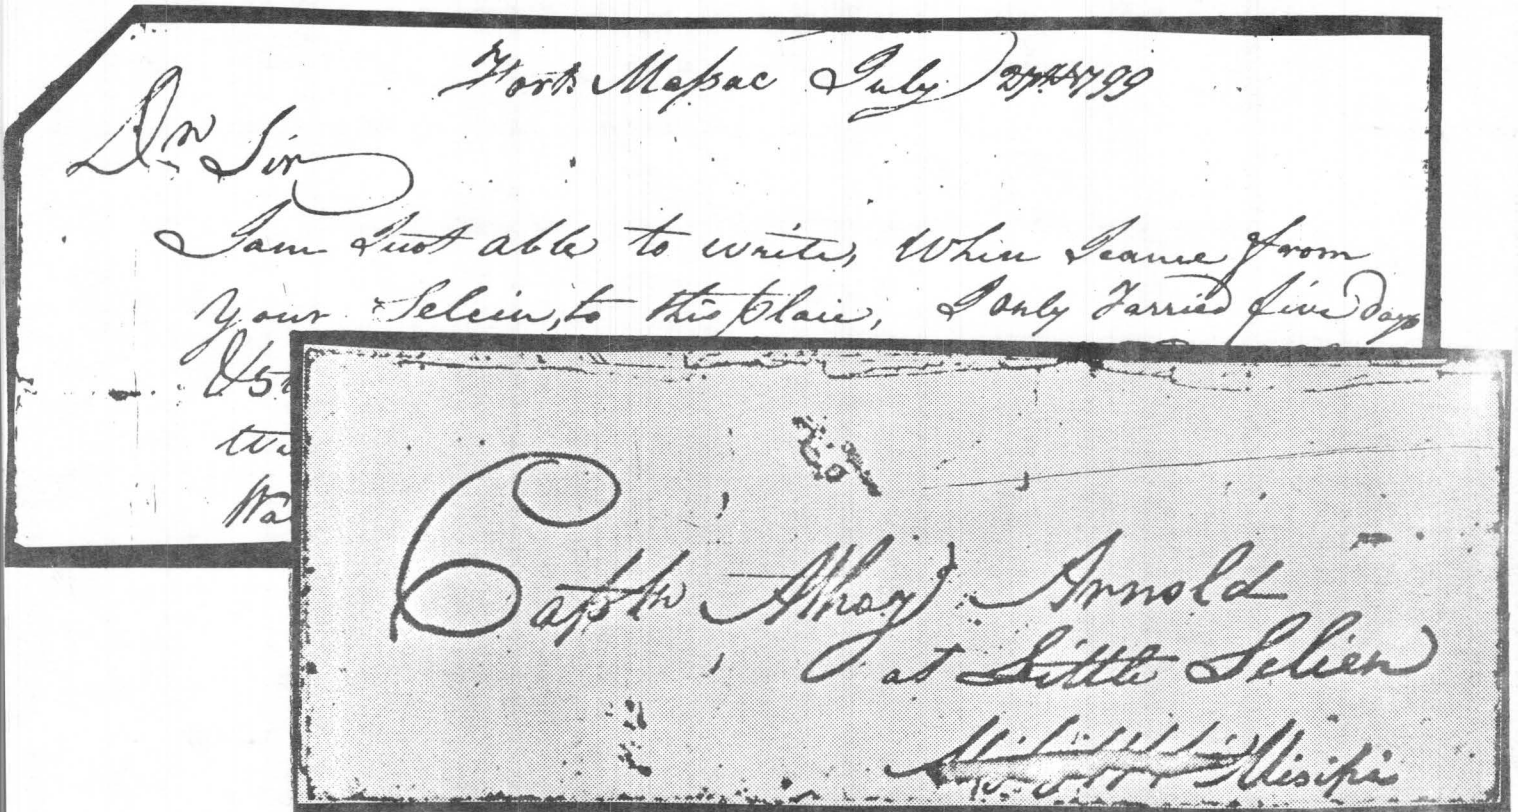 Fort Massac July 27th 1799
Dr Sir
I am Just able to write, When I came from
your Selein, to this plaie, I only Tarried five Days
&
Wa
Captn Arnold
at Little Selien
Misipi